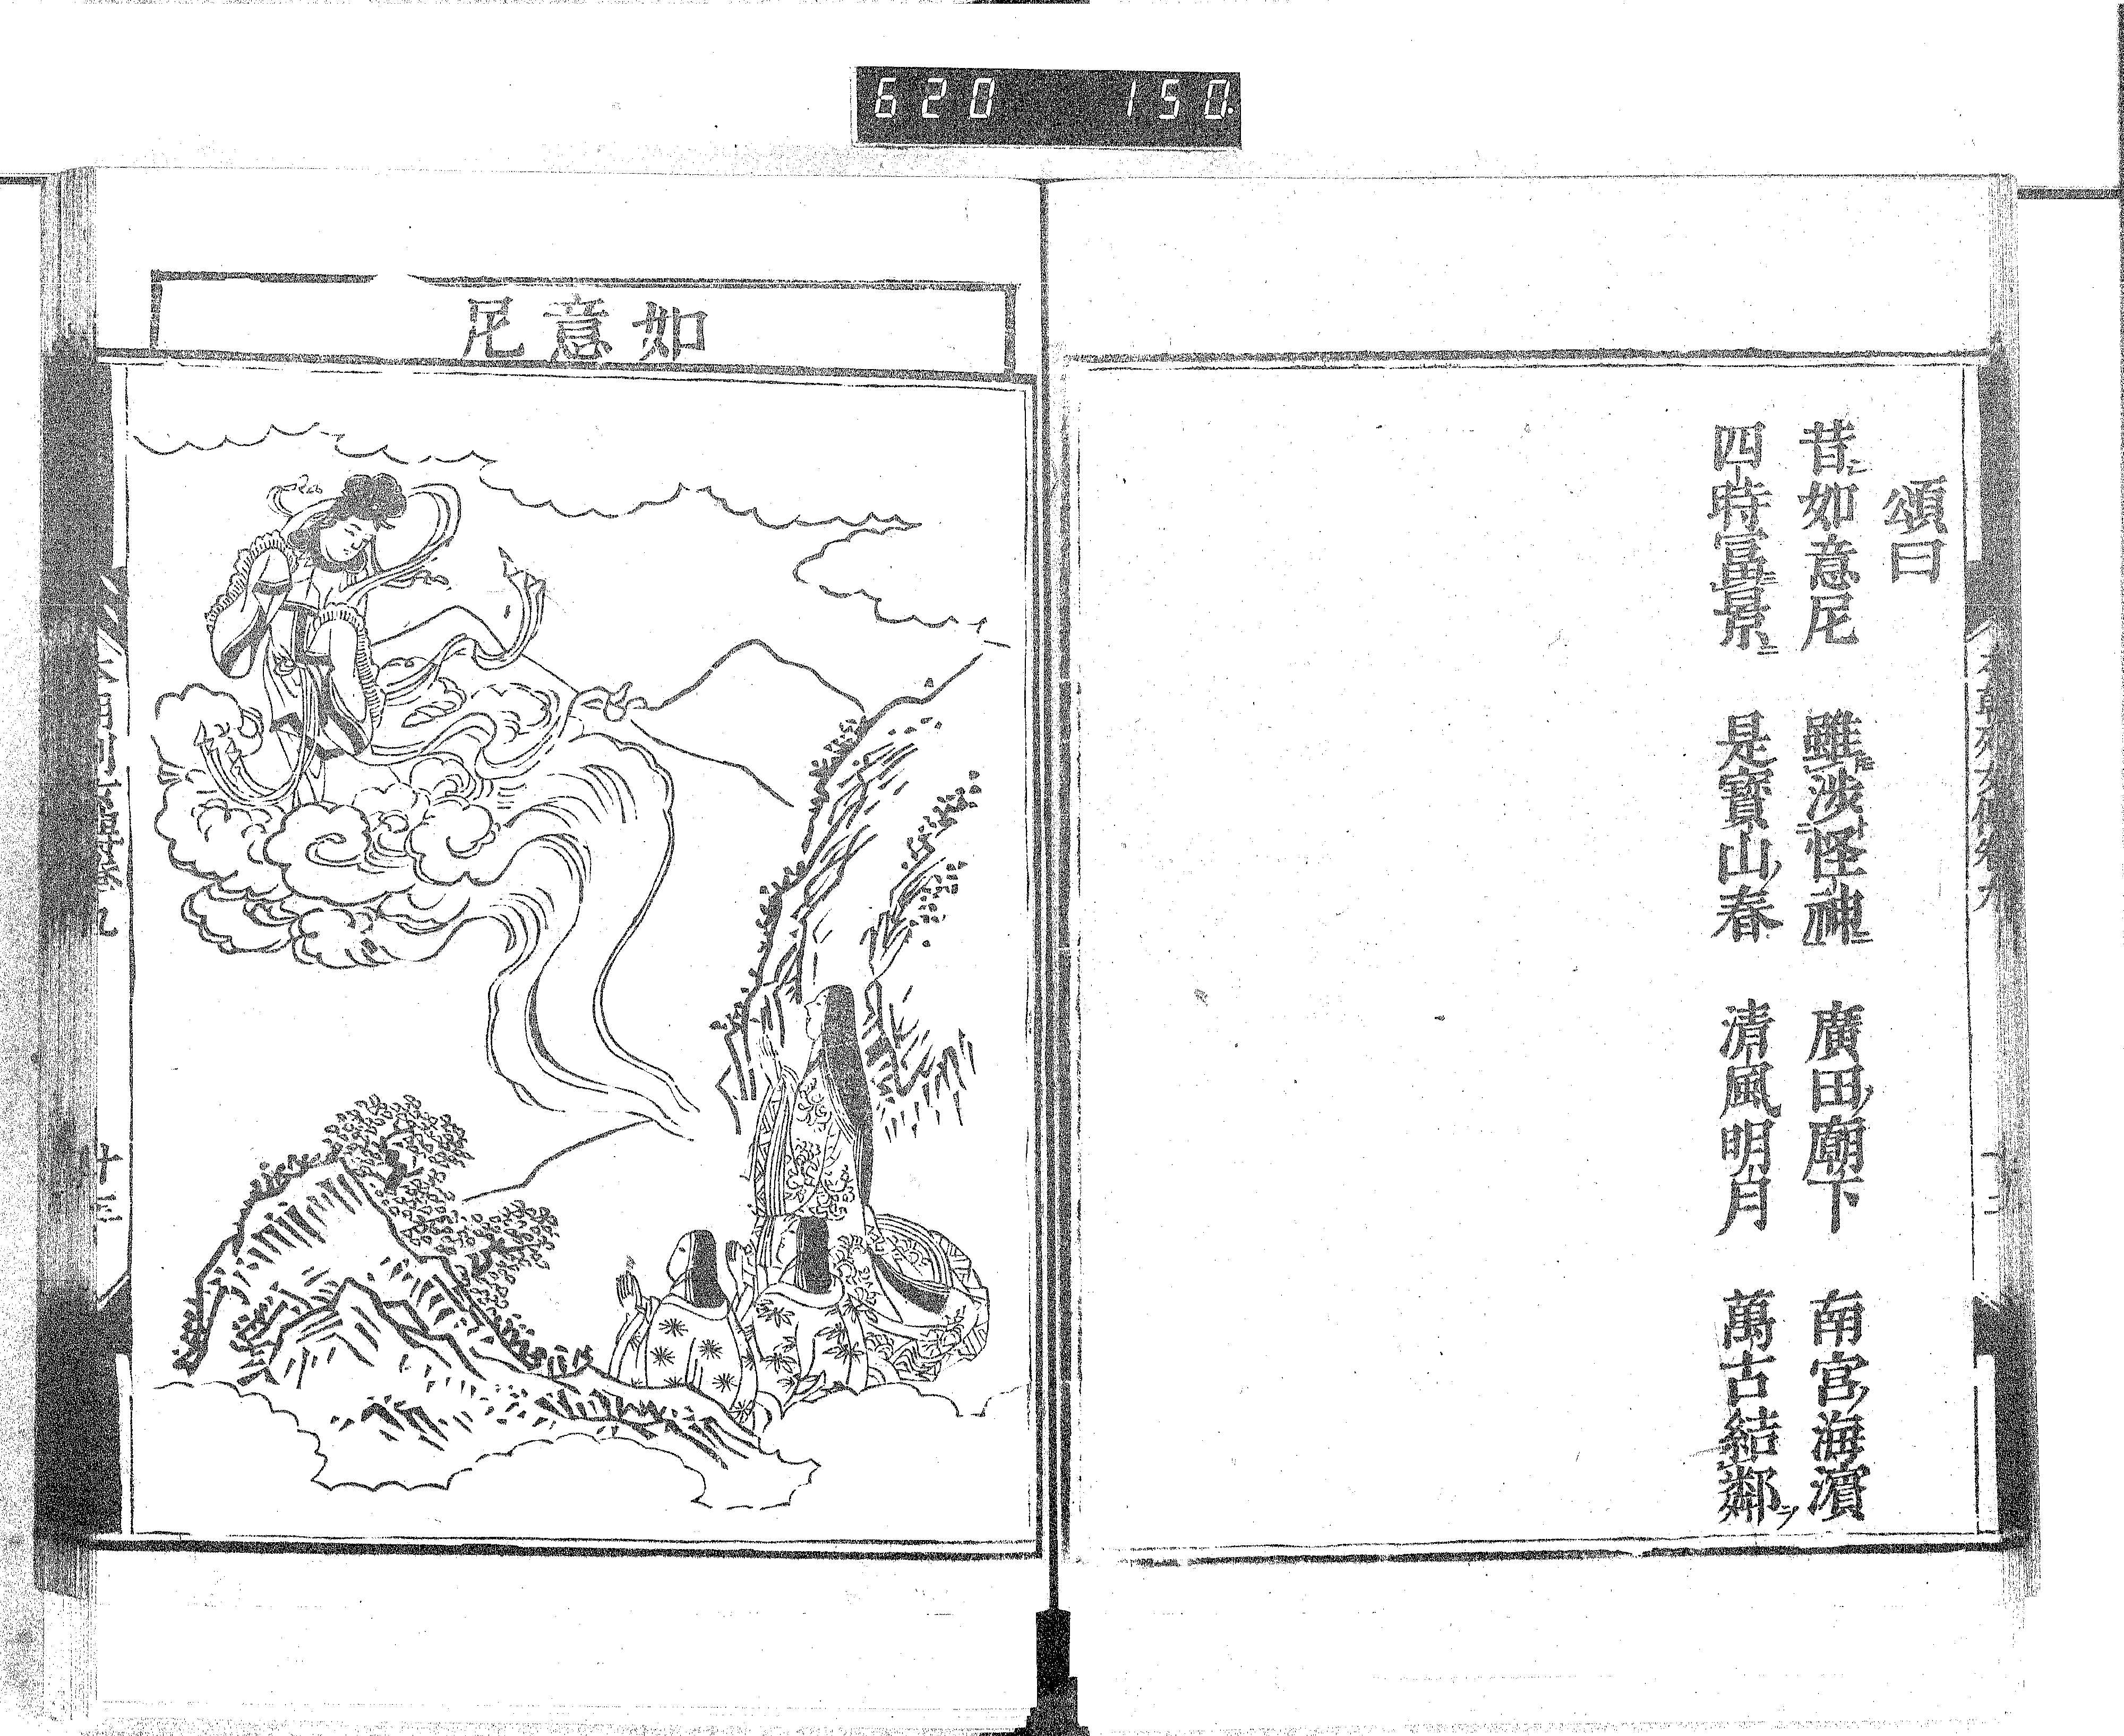 620 150.
頌曰
昔如意尼 雖渉怪神 廣田廟下 南宮海濱
四時富景 是寶山春 清風明月 萬古結鄰
如意尼